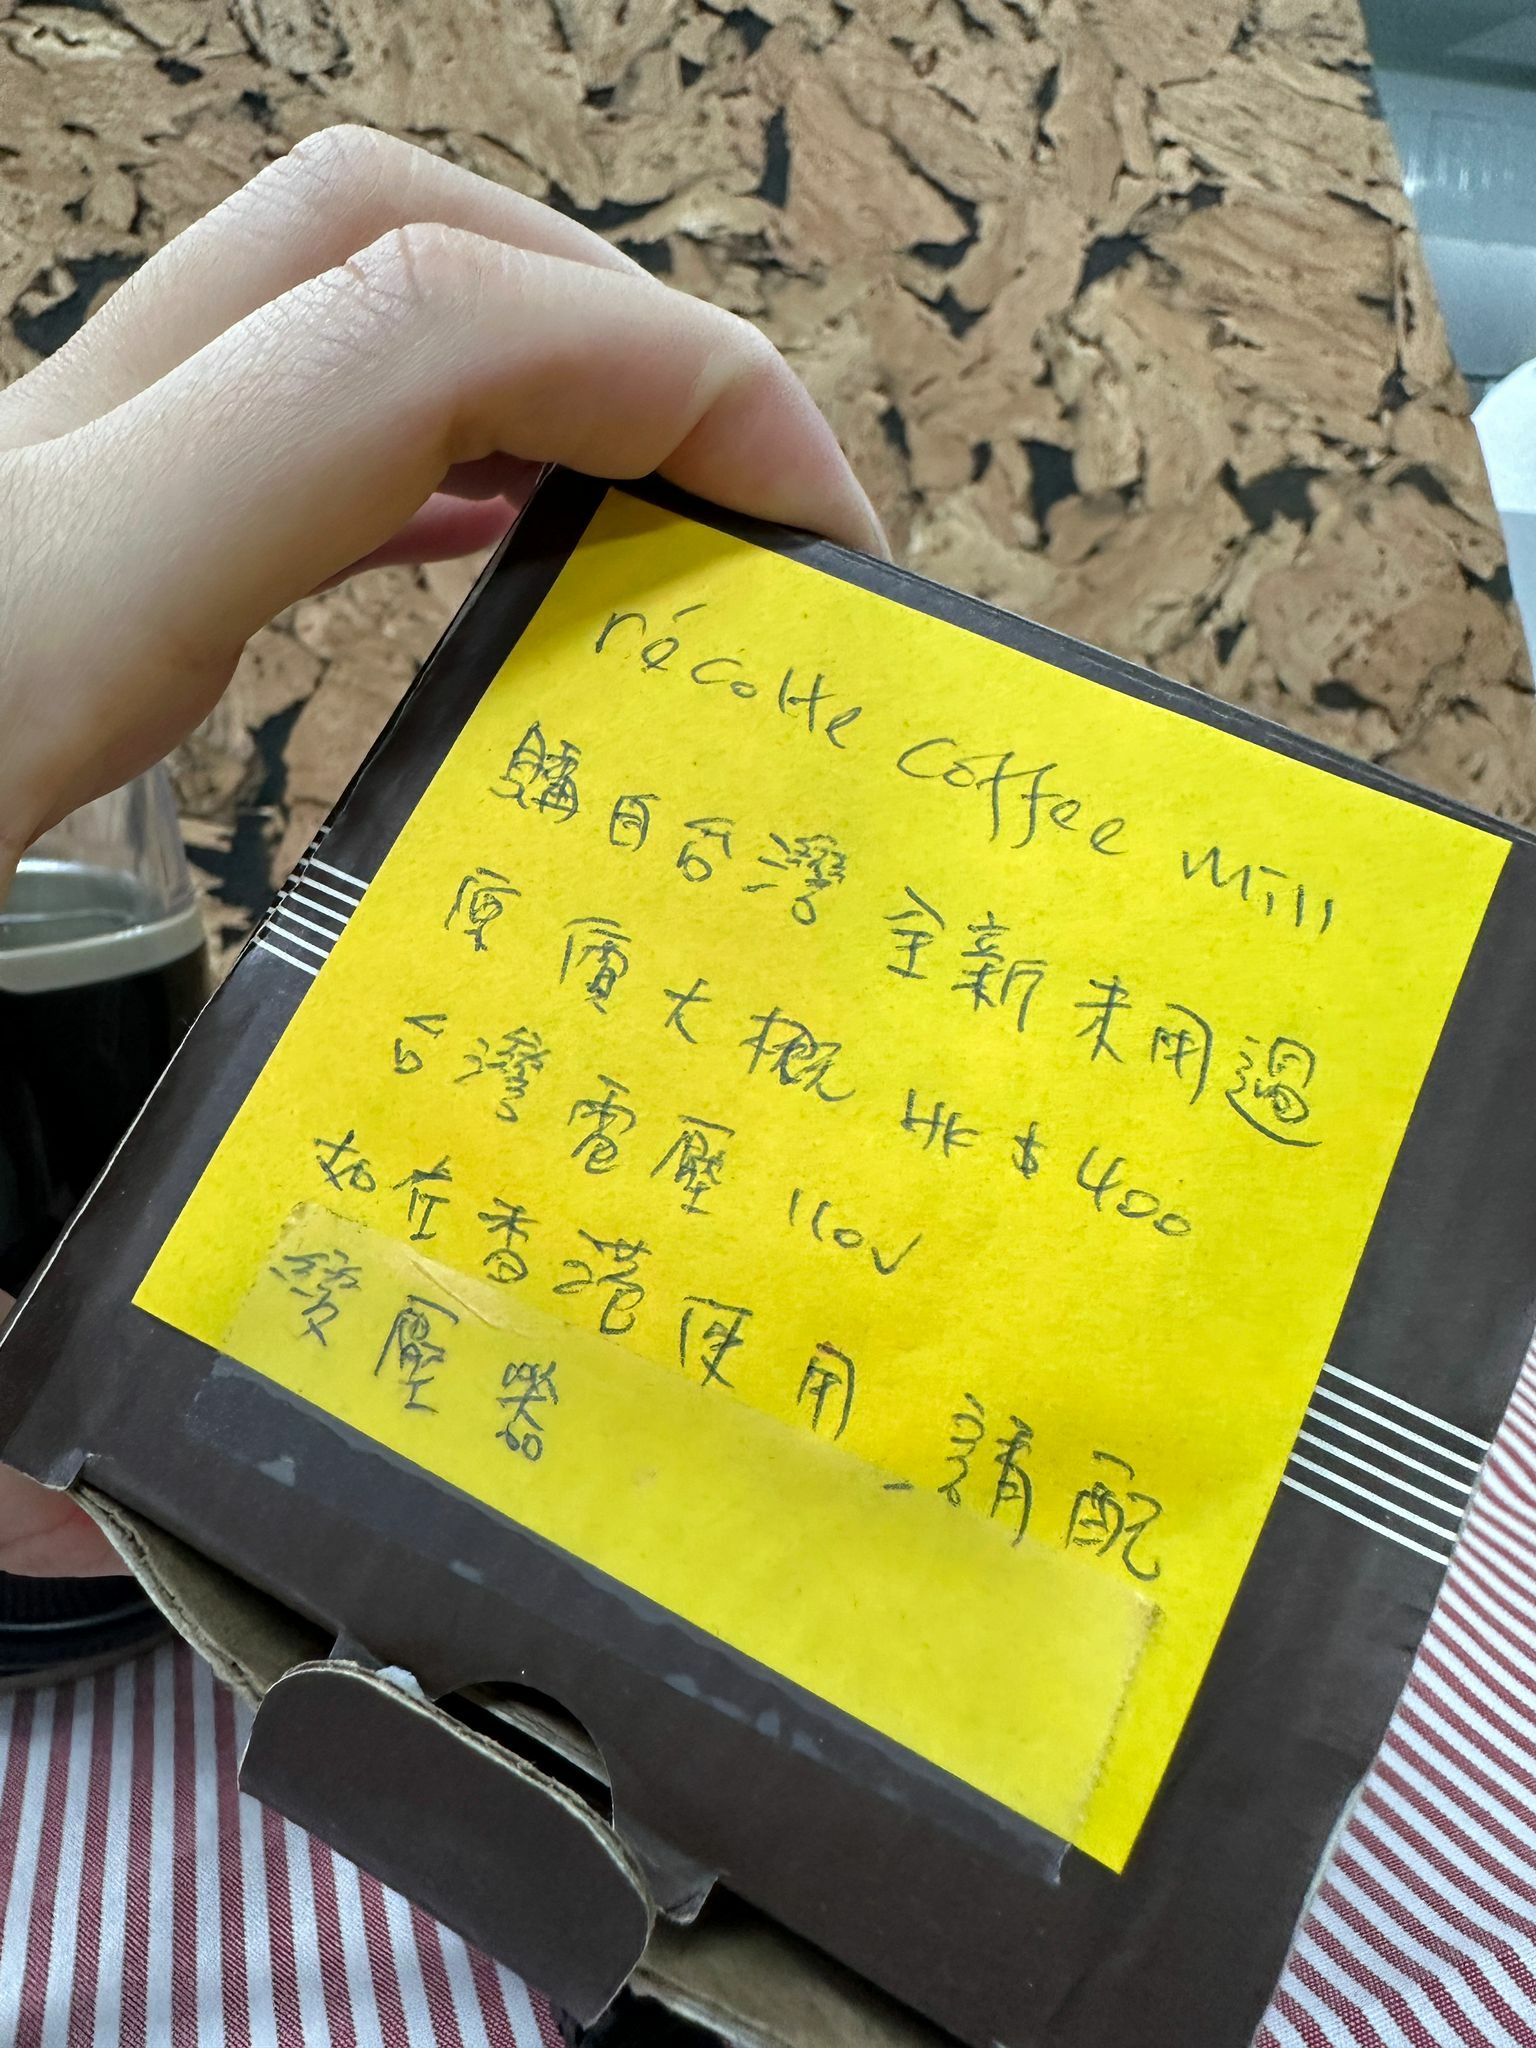 récolte coffee mill
購自台灣 全新未用過
原價大概 HK$400
台灣電壓 110V
如在香港使用,請配
變壓器